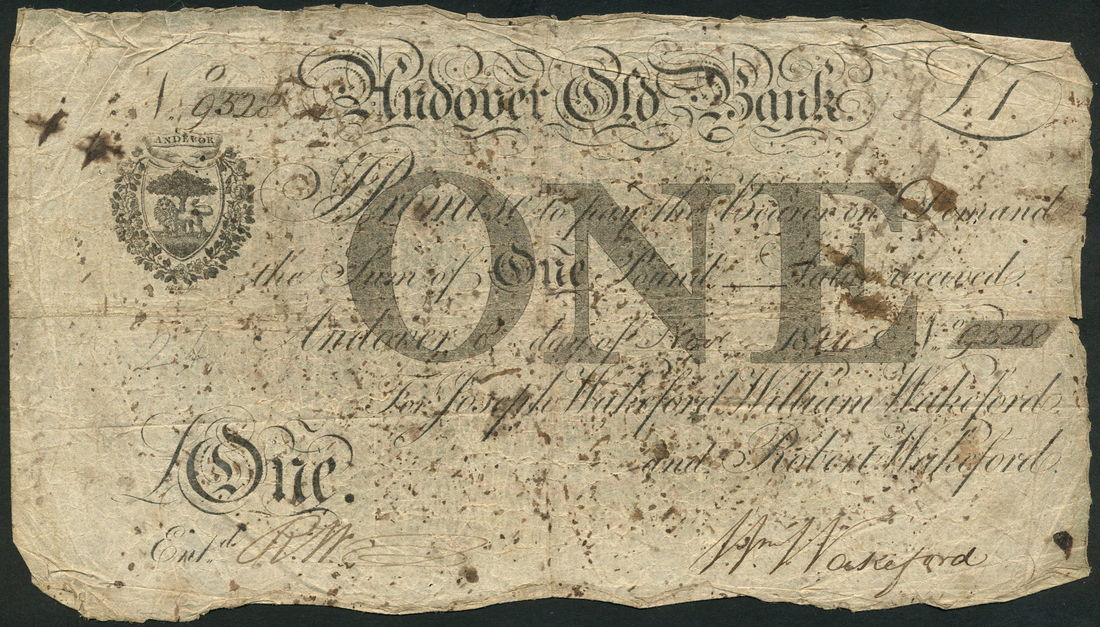 Andover Old Bank.
No. 9528
£1.
ANDEVOR
I Promise to pay the Bearer on Demand
ONE
the Sum of One Pound Value received.
Andover, day of Nov. No. 9528
For Joseph Wakeford, William Wakeford.
and Robert Wakeford.
£One.
Entd. R.W.
Wakeford